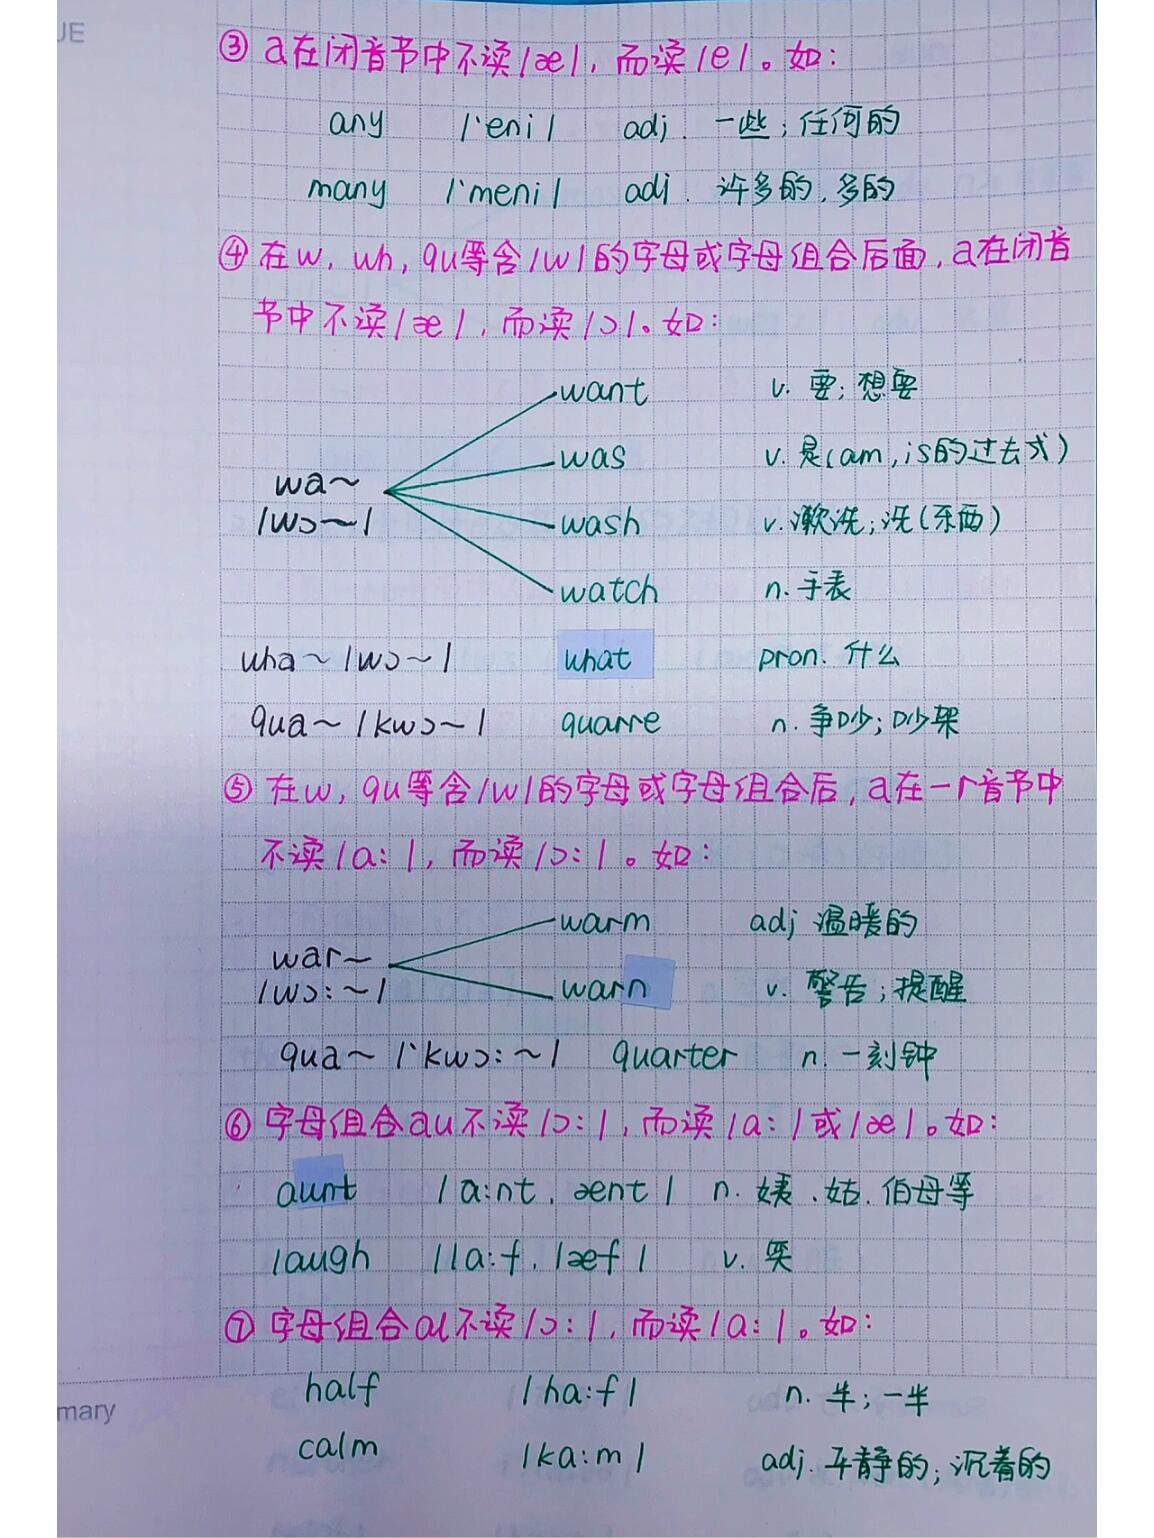 UE
③ a在闭音节中不读/æ/，而读/e/。如：
any /ˋeni/ adj. 一些；任何的
many /ˋmeni/ adj. 许多的，多的
④ 在w，wh，qu等含/w/的字母或字母组合后面，a在闭音
节中不读/æ/，而读/ɔ/。如：
want v. 要；想要
was v. 是(am，is的过去式)
wa~
/wɔ~/
wash v. 漱洗；洗(东西)
watch n. 手表
wha~ /wɔ~/ what pron. 什么
qua~ /kwɔ~/ quarre n. 争吵；吵架
⑤ 在w，qu等含/w/的字母或字母组合后，a在一r音节中
不读/a:/，而读/ɔ:/。如：
warm adj 温暖的
war~
/wɔ:~/
warn v. 警告；提醒
qua~ /ˋkwɔ:~/ quarter n. 一刻钟
⑥ 字母组合au不读/ɔ:/，而读/a:/或/æ/。如：
aunt /a:nt，ænt/ n. 姨、姑、伯母等
laugh /la:f，læf/ v. 笑
⑦ 字母组合al不读/ɔ:/，而读/a:/。如：
half /ha:f/ n. 半；一半
mary
calm /ka:m/ adj. 平静的；沉着的